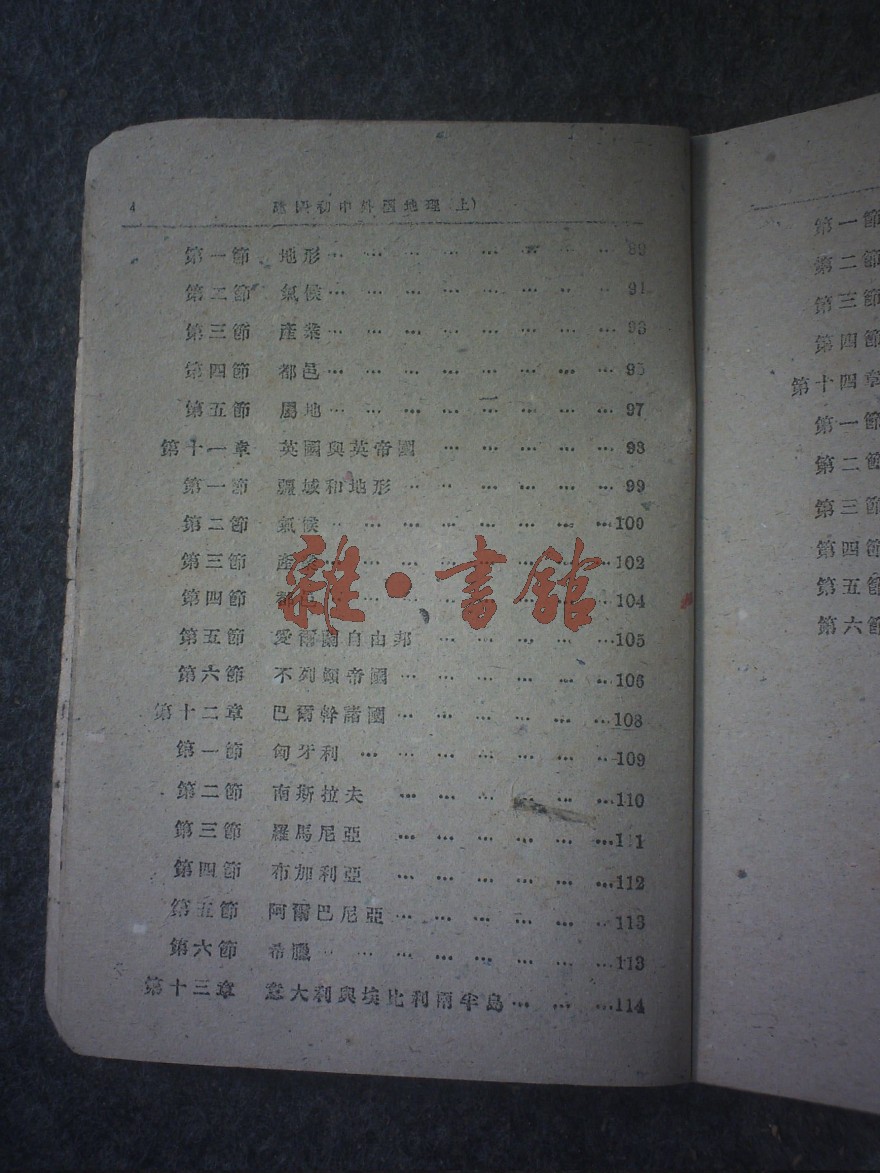 4 建國初中外國地理(上)
第一節 地形… … … … … … … … 89
第二節 氣候… … … … … … … … 91
第三節 產業… … … … … … … … 93
第四節 都邑… … … … … … … … 95
第五節 屬地… … … … … … … … 97
第十一章 英國與英帝國 … … … … … 98
第一節 疆域和地形… … … … … … 99
第二節 氣候… … … … … … … …100
第三節 產業… … … … … … … …102
第四節 都邑… … … … … … … …104
第五節 愛爾蘭自由邦 … … … … …105
第六節 不列顛帝國… … … … … …106
第十二章 巴爾幹諸國… … … … … …108
第一節 匈牙利 … … … … … … …109
第二節 南斯拉夫 … … … … … …110
第三節 羅馬尼亞 … … … … … …111
第四節 布加利亞 … … … … … …112
第五節 阿爾巴尼亞… … … … … …113
第六節 希臘… … … … … … … …113
第十三章 意大利與埃比利兩半島… … …114
雜·書館
第一節
第二節
第三節
第四節
第十四章
第一節
第二節
第三節
第四節
第五節
第六節